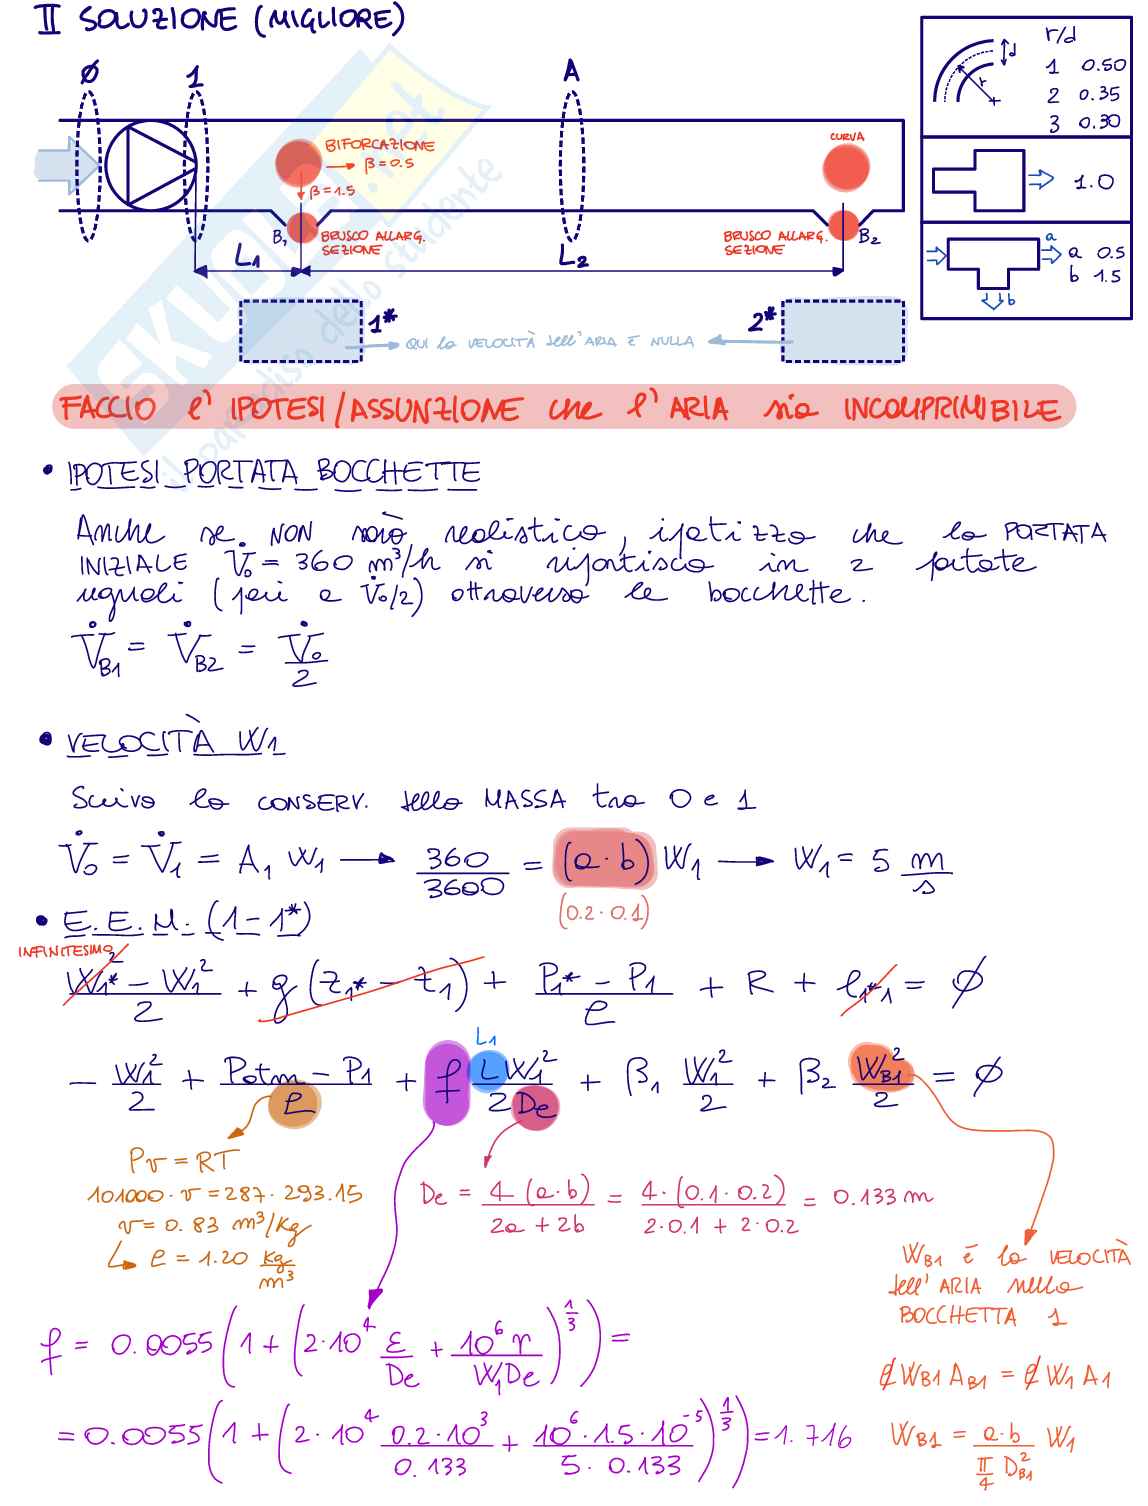 II SOLUZIONE (MIGLIORE)
Ø 1 A
BIFORCAZIONE
β=0.5
β=1.5
CURVA
B1 BRUSCO ALLARG. SEZIONE
BRUSCO ALLARG. SEZIONE B2
L1 L2
1* QUI la VELOCITÀ dell'ARIA È NULLA 2*
r/d
d
r
1 0.50
2 0.35
3 0.30
1.0
a
a 0.5
b 1.5
b
SKUOLA.net
il paradiso dello studente
FACCIO l'IPOTESI/ASSUNZIONE che l'ARIA sia INCOMPRIMIBILE
• IPOTESI PORTATA BOCCHETTE
Anche se NON sarà realistico, ipotizzo che la PORTATA
INIZIALE V̇0 = 360 m³/h si ripartisca in 2 portate
uguali (pari a V̇0/2) attraverso le bocchette.
V̇B1 = V̇B2 = V̇0/2
• VELOCITÀ W1
Scrivo la CONSERV. della MASSA tra 0 e 1
V̇0 = V̇1 = A1 W1 → 360/3600 = (a·b) W1 → W1 = 5 m/s
(0.2·0.1)
• E.E.M. (1-1*)
INFINITESIMO
(W1*² - W1²)/2 + g(z1* - z1) + (P1* - P1)/ρ + R + l1*1 = Ø
L1
- W1²/2 + (Patm - P1)/ρ + f L W1²/(2 De) + β1 W1²/2 + β2 WB1²/2 = Ø
Pv = RT
101000·v = 287·293.15
v = 0.83 m³/kg
↳ ρ = 1.20 kg/m³
De = 4(a·b)/(2a+2b) = 4·(0.1·0.2)/(2·0.1+2·0.2) = 0.133 m
WB1 è la VELOCITÀ
dell'ARIA nella
BOCCHETTA 1
ρ WB1 AB1 = ρ W1 A1
WB1 = a·b/(π/4 DB1²) W1
f = 0.0055(1+(2·10⁴ ε/De + 10⁶ r/(W1 De))^(1/3)) =
= 0.0055(1+(2·10⁴ 0.2·10³/0.133 + 10⁶·1.5·10⁻⁵/(5·0.133))^(1/3)) = 1.716